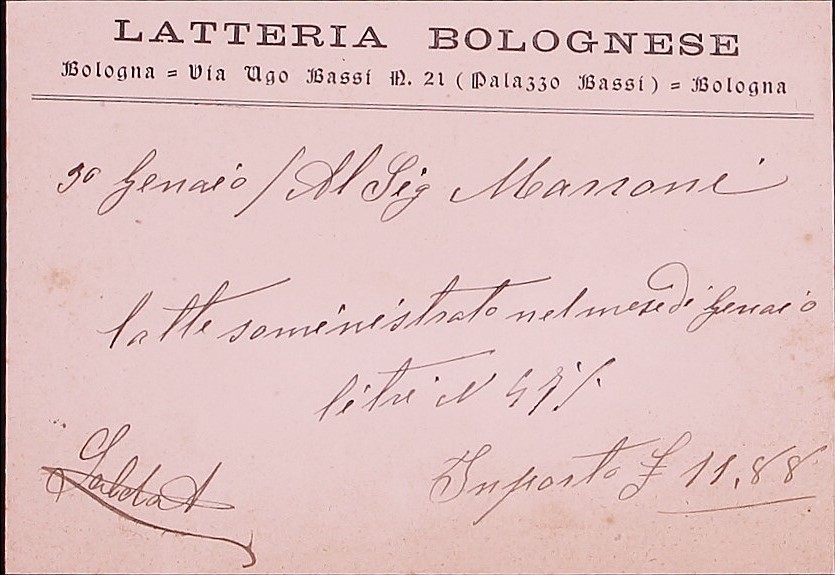 LATTERIA BOLOGNESE
Bologna = Via Ugo Bassi N. 21 (Palazzo Bassi) = Bologna
30 Genaio / Al Sig Marroni
latte soministrato nel mese di Genaio
litri N
Inporto £ 11,88
Saldat